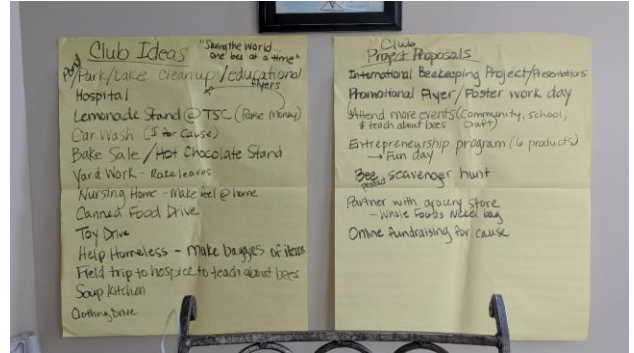 Club Ideas
"Saving the world...
one bee at a time"
Pond/Park/Lake Cleanup/educational
flyers
Hospital
Lemonade Stand @ TSC (Raise Money)
Car Wash ($ for cause)
Bake Sale / Hot Chocolate Stand
Yard Work - Rake leaves
Nursing Home - Make feel @ home
Canned Food Drive
Toy Drive
Help Homeless - make baggies of items
Field trip to hospice to teach about bees
Soup Kitchen
Clothing Drive
Club
Project Proposals
International Beekeeping Project/Presentations
Promotional Flyer/Poster work day
Attend more events (Community, school,
& teach about bees Craft)
Entrepreneurship program (6 products)
→ Fun day
Bee scavenger hunt
Partner with grocery store
- Whole Foods Nickel bag
Online fundraising for cause